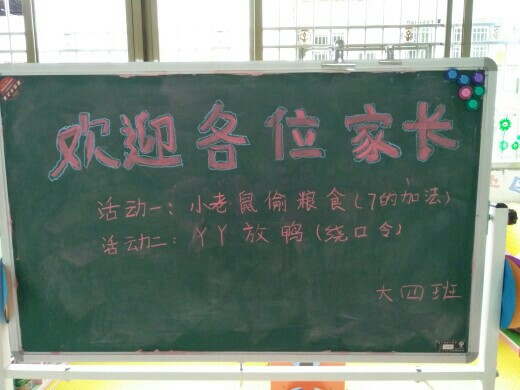 欢迎各位家长
活动一：小老鼠偷粮食(7的加法)
活动二：丫丫放鸭(绕口令)
大四班